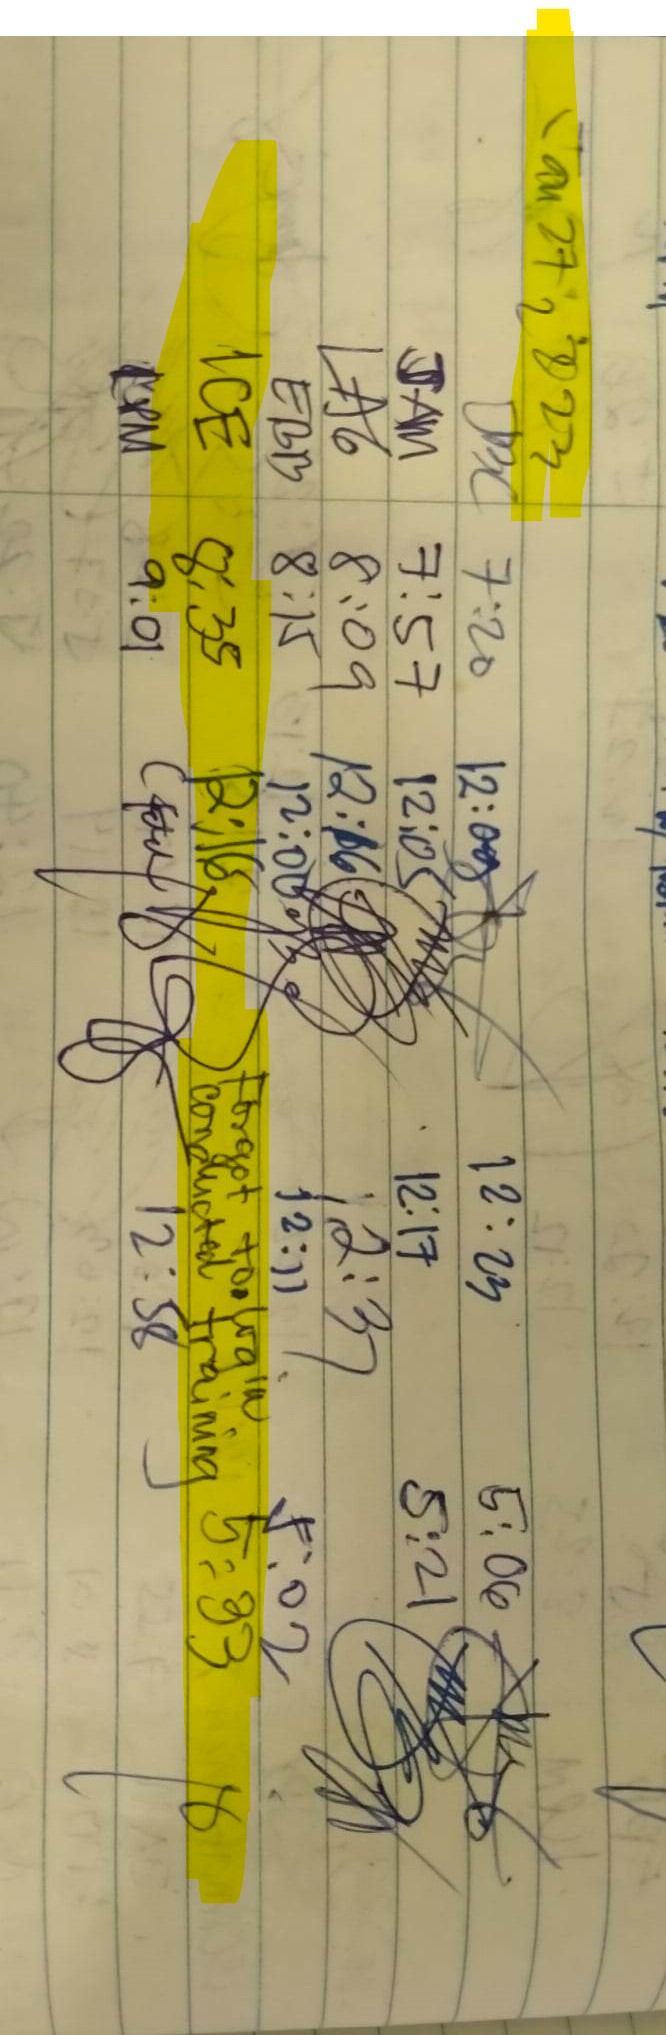 Jan 27, 2023
7:20 12:09 12:23 5:06
JAM 7:57 12:05 12:17 5:21
LAG 8:09 12:16 12:37
EBB 8:15 12:06 12:11 5:02
LCE 8:35 12:16 Forgot to log in conducted training 5:33
9:01 12:58